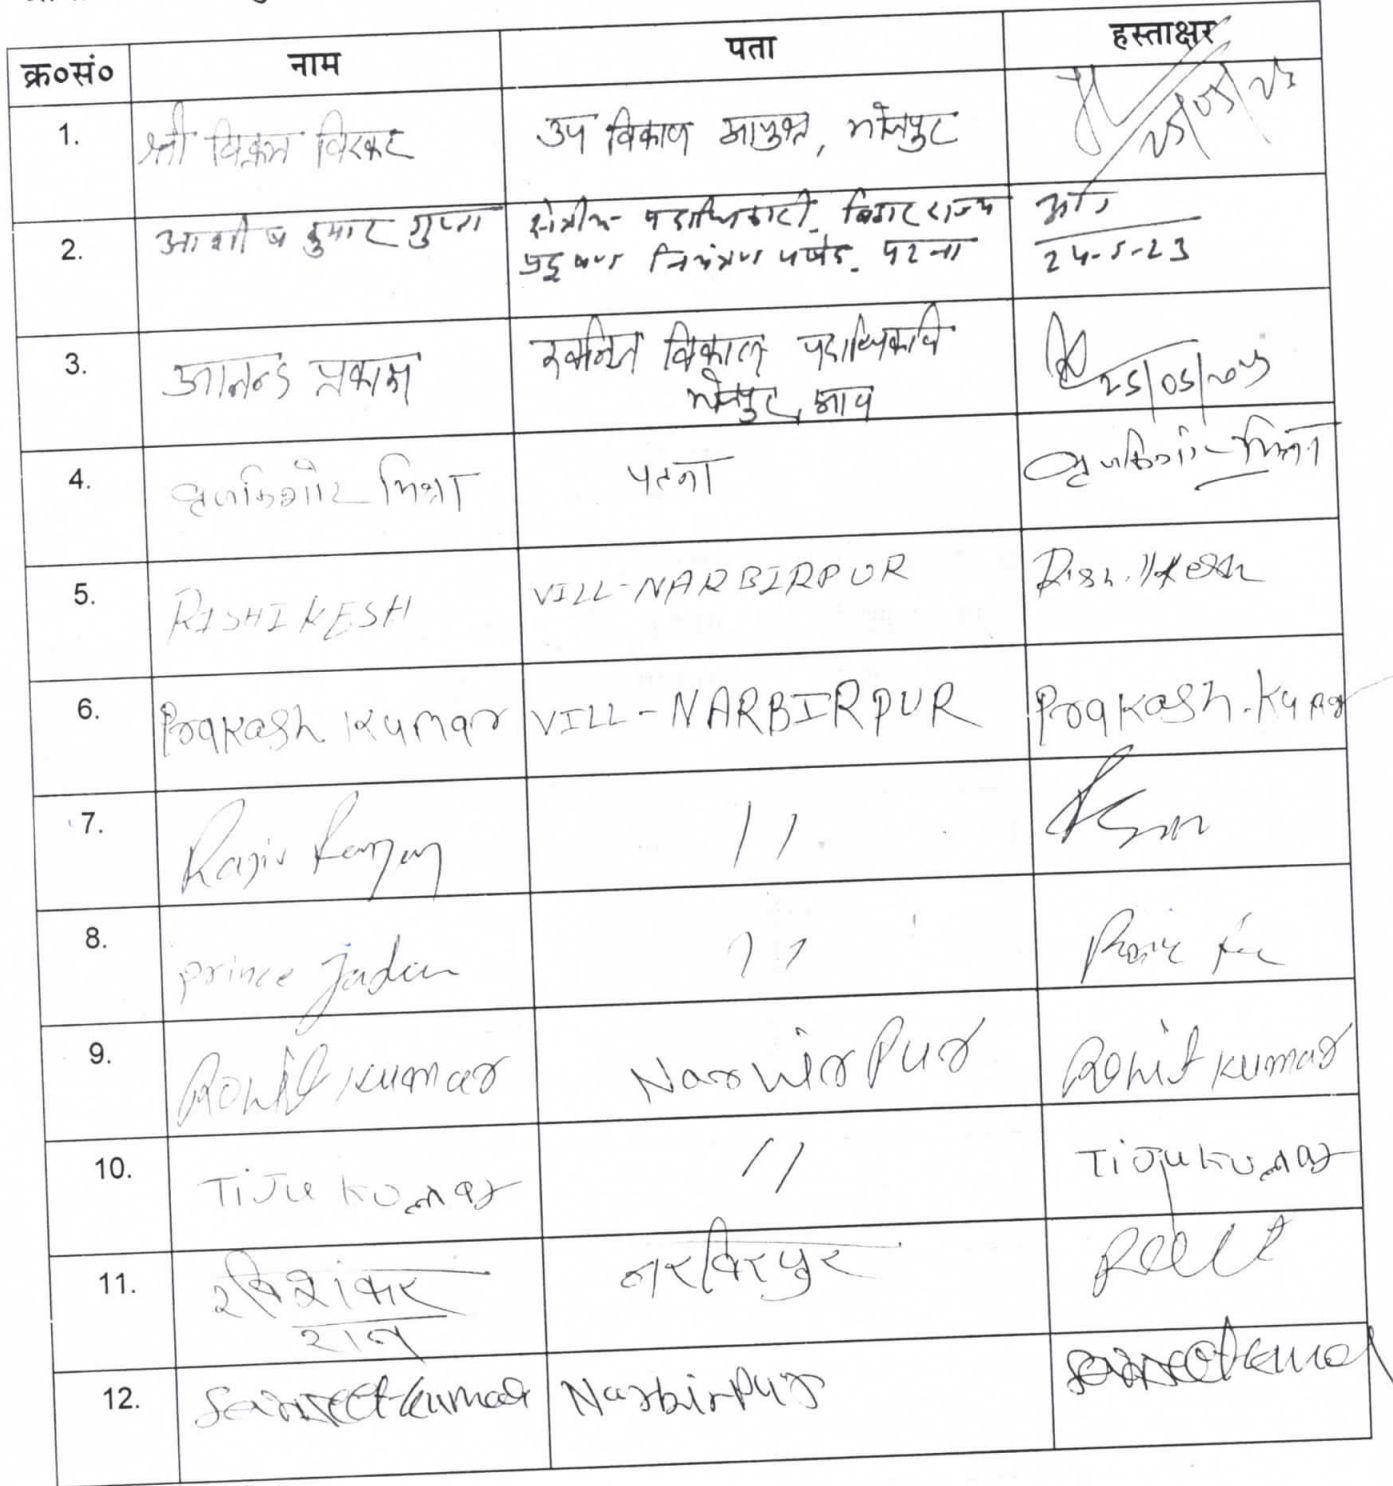 क्र०सं० नाम पता हस्ताक्षर
1. श्री विक्रम विरकर उप विकास आयुक्त, भोजपुर 25/05/23
2. आशीष कुमार गुप्ता क्षेत्रीय पदाधिकारी, बिहार राज्य
प्रदूषण नियंत्रण पर्षद, पटना 24-5-23
3. आनन्द प्रकाश खनिज विकास पदाधिकारी
भोजपुर, आरा 25/05/2023
4. बृजकिशोर मिश्रा पटना बृजकिशोर मिश्रा
5. RISHIKESH VILL-NARBIRPUR Rishikesh
6. Prakash Kumar VILL-NARBIRPUR Prakash Kumar
7. Rajiv Ranjan 11
8. Prince 11
9. Rohit Kumar Narwirpur Rohit Kumar
10. Tiju Kumar 11 Tiju Kumar
11. रविशंकर नरविरपुर
12. Kumar Narbirpur